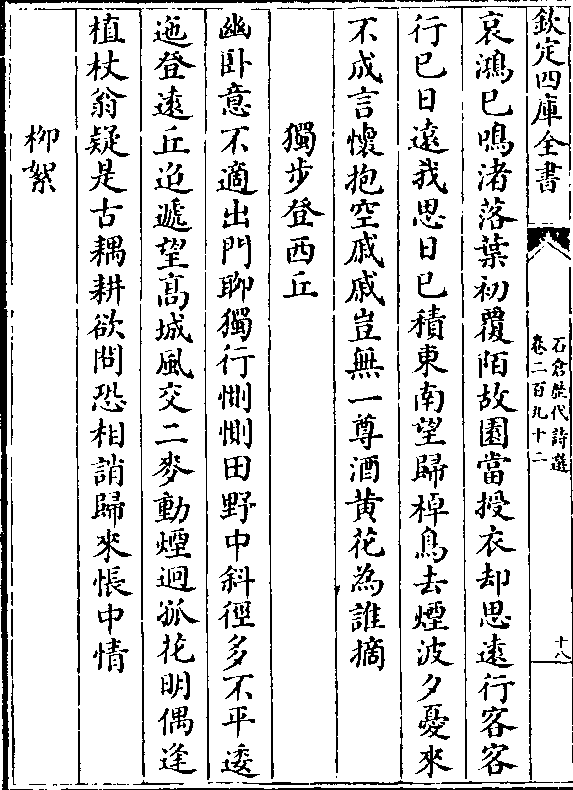 欽定四庫全書
石倉歷代詩選
卷二百九十二
十八
哀鴻已鳴渚落葉初覆陌故園當授衣却思遠行客客
行已日遠我思日已積東南望歸棹鳥去煙波夕憂來
不成言懷抱空戚戚豈無一尊酒黄花為誰摘
獨步登西丘
幽卧意不適出門聊獨行惻惻田野中斜徑多不平逶
迤登遠丘迢遞望高城風交二麥動煙迴孤花明偶逢
植杖翁疑是古耦耕欲問恐相誚歸來悵中情
柳絮